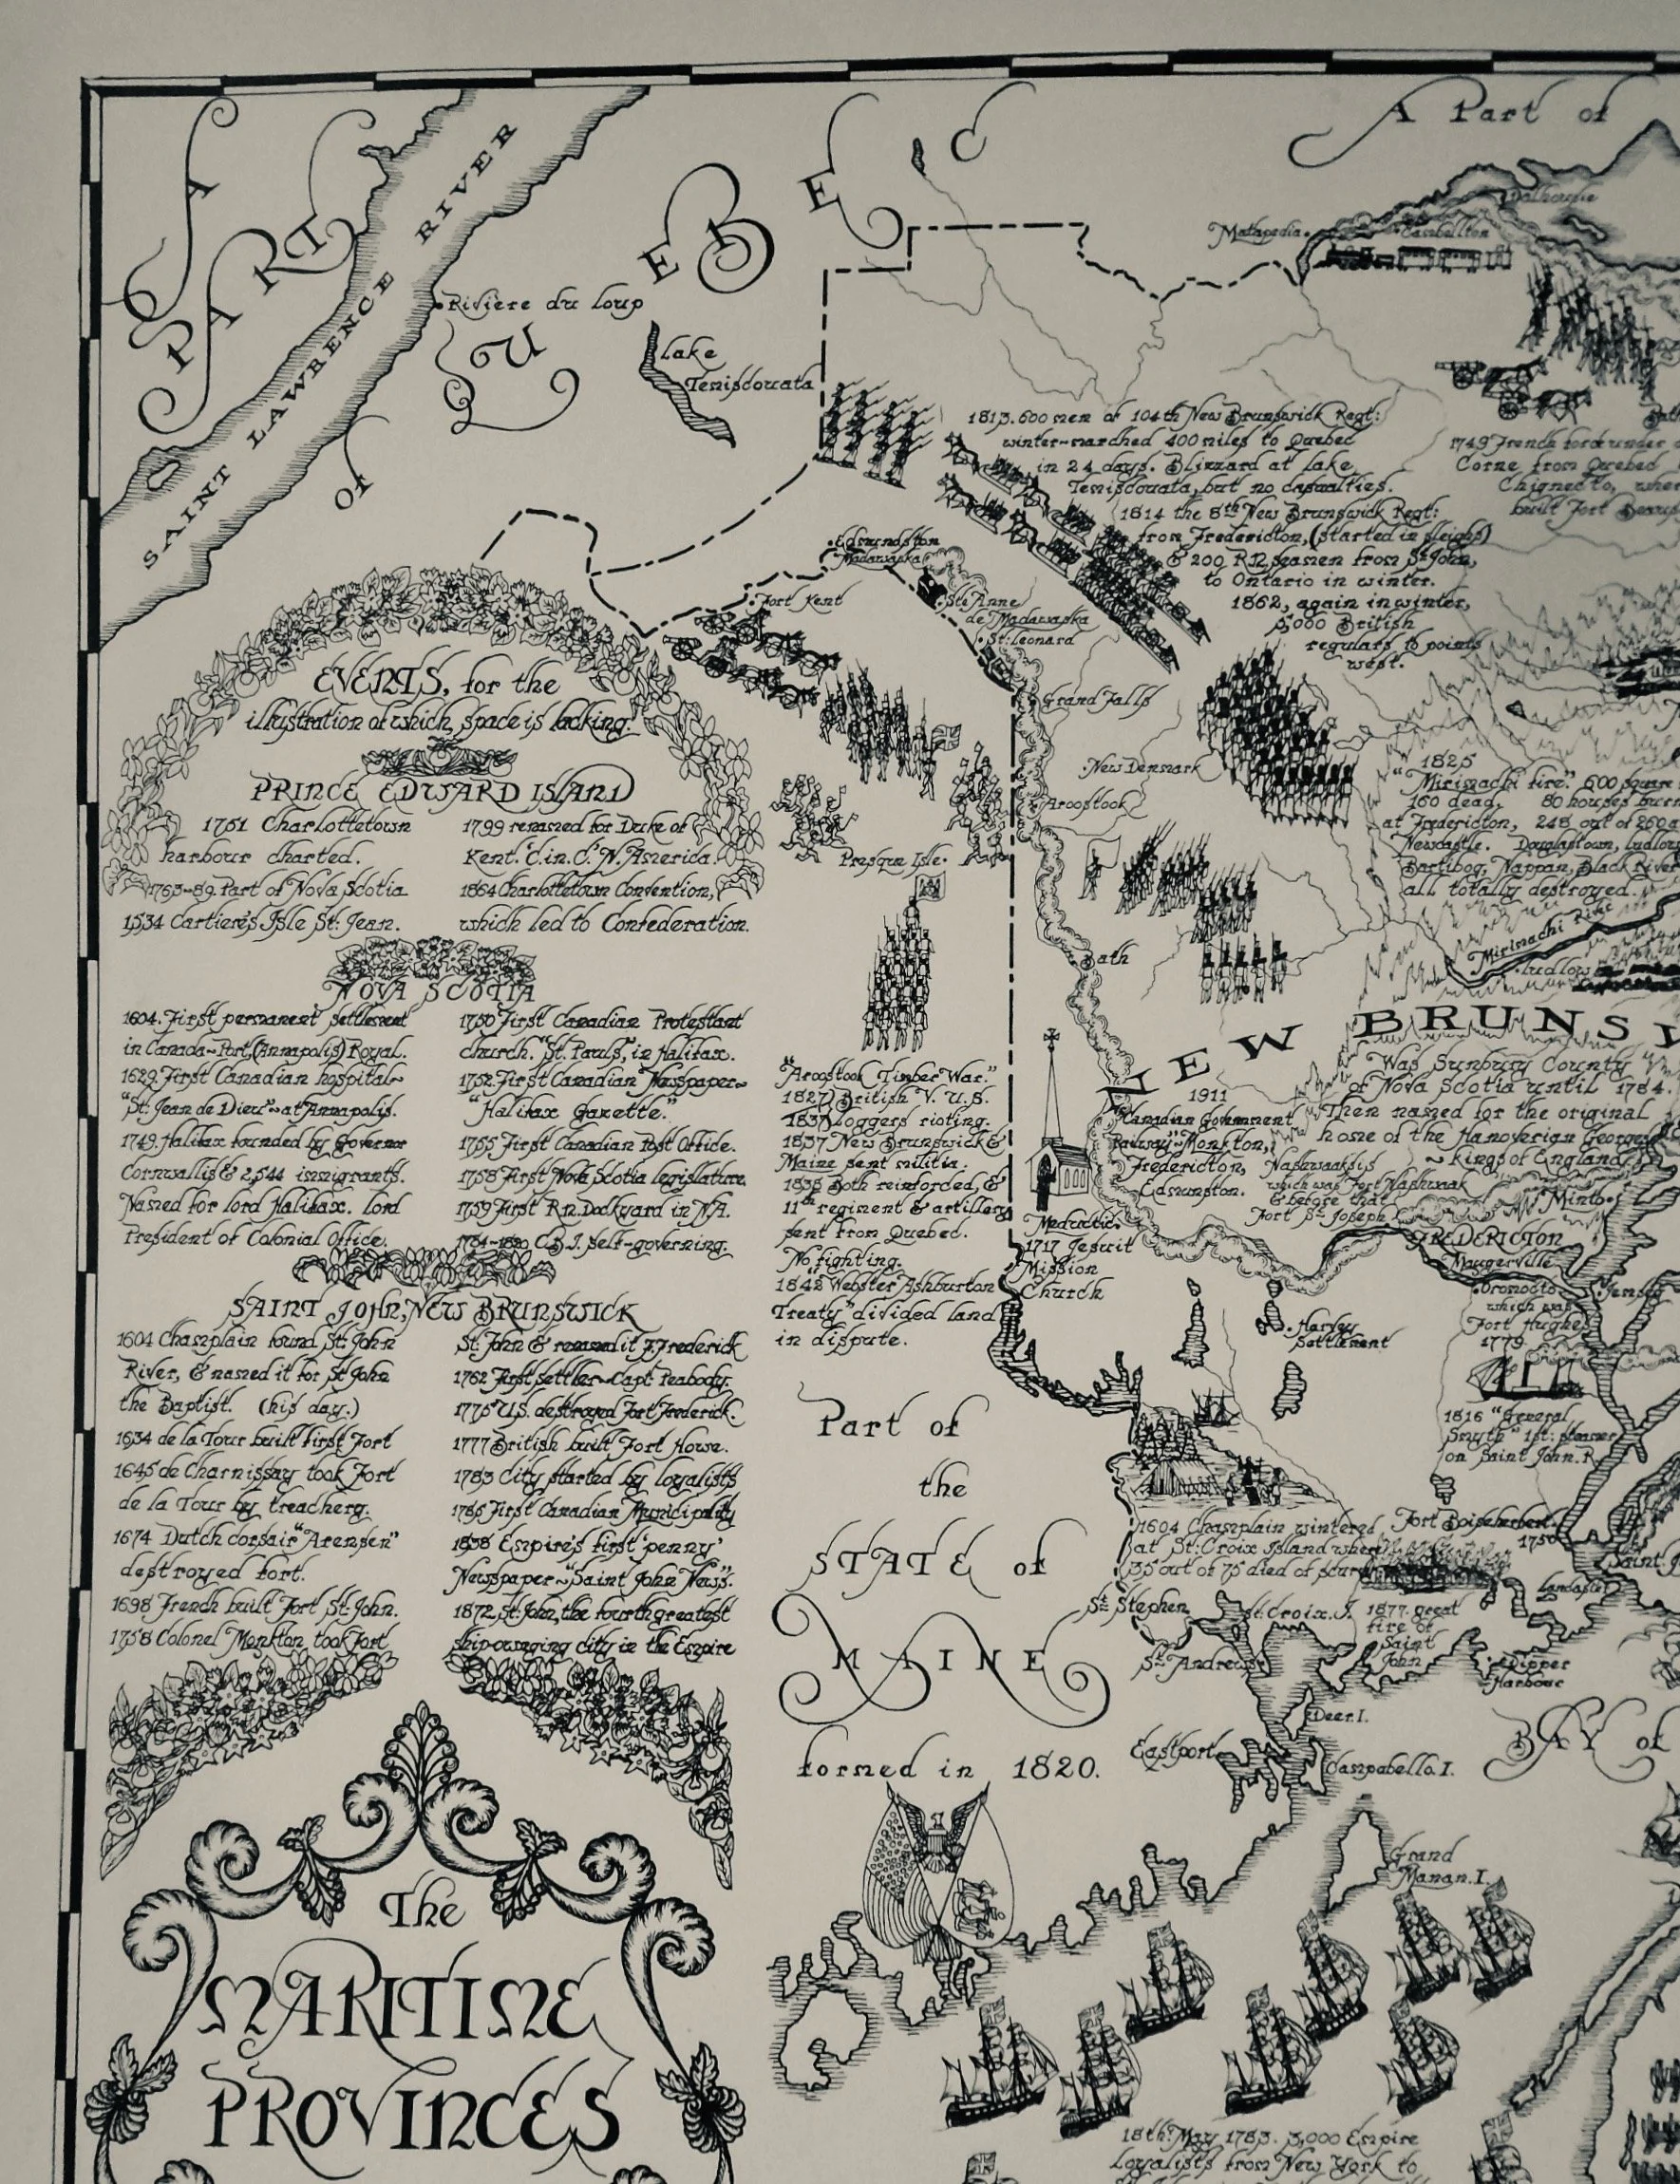 A PART of QUEBEC
SAINT LAWRENCE RIVER
A Part of
Rivière du loup
Lake
Temisdouata
Matapedia
Dalhousie
Campbellton
1813. 600 men of 104th New Brunswick Regt:
winter-marched 400 miles to Quebec
in 24 days. Blizzard at Lake
Temisdouata, but no casualties.
1814 the 8th New Brunswick Regt:
from Fredericton, (started in sleighs)
& 200 R.N. seamen from St John,
to Ontario in winter.
1862, again in winter,
5,000 British
regulars to points
west.
1749 French force under
Corne from Quebec
Chignecto, where
built Fort
Edmundston
Madawaska
Fort Kent
Ste Anne
de Madawaska
St: Leonard
Grand Falls
New Denmark
Aroostook
Presque Isle.
Bath
EVENTS, for the
illustration of which, space is lacking.
PRINCE EDWARD ISLAND
1751 Charlottetown
harbour charted.
1763-89. Part of Nova Scotia
1534 Cartier's Isle St: Jean.
1799 renamed for Duke of
Kent. C.in.C. N. America.
1864 Charlottetown Convention,
which led to Confederation.
NOVA SCOTIA
1604. First permanent settlement
in Canada~Port, (Annapolis) Royal.
1629. First Canadian hospital~
"St: Jean de Dieu"~at Annapolis.
1749. Halifax founded by Governor
Cornwallis & 2,544 immigrants.
Named for lord Halifax. lord
President of Colonial Office.
1750 First Canadian Protestant
church. "St. Paul's, in Halifax.
1752. First Canadian Newspaper~
"Halifax Gazette."
1755 First Canadian Post Office.
1758 First Nova Scotia legislature.
1759 First R.N. Dockyard in N.A.
1784-1820 C.B.I. self-governing.
SAINT JOHN, NEW BRUNSWICK
1604 Champlain found St: John
River, & named it for St John
the Baptist. (his day.)
1634 de la Tour built first Fort
1645 de Charnissay took Fort
de la Tour by treachery.
1674 Dutch corsair "Arensen"
destroyed fort.
1698 French built Fort St: John.
1758 Colonel Monkton took Fort
St: John & renamed it F. Frederick
1762 First settler~Capt Peabody.
1775 U.S. destroyed Fort Frederick.
1777 British built Fort Howe.
1783 City started by loyalists
1785 First Canadian Municipality
1838 Empire's first 'penny'
Newspaper~"Saint John News".
1872, St: John, the fourth greatest
ship-owning city in the Empire
"Aroostook Timber War."
1827) British V. U.S.
1837) loggers rioting.
1837 New Brunswick &
Maine sent militia.
1838 Both reinforced, &
11th regiment & artillery
sent from Quebec.
No fighting.
1842 "Webster Ashburton
Treaty" divided land
in dispute.
1825
"Mirimachi fire". 600 square
160 dead. 80 houses burn
at Fredericton, 248 out of 260 a
Newcastle. Douglastown, Ludlow
Bartibog, Nappan, Black River
all totally destroyed.
Mirimachi River
Ludlow
NEW BRUNSW
Was Sunbury County
of Nova Scotia until 1784.
Then named for the original
home of the Hanoverian Georges
~ kings of England.
1911
Canadian Government
Railway~Monkton,
Fredericton,
Edmunston.
Nashwaaksis
which was Fort Nashwaak
& before that
Fort St: Joseph
Minto
FREDERICTON
Maugerville
Oromocto
which was
Fort Hughes
1779.
Jemseg
Meductic
1717 Jesuit
Mission
Church
Harvey
Settlement
1816 "General
Smyth" 1st: steamer
on Saint John. R.
Part of
the
STATE of
MAINE
formed in 1820.
1604 Champlain wintered
at St: Croix Island where
35 out of 75 died of scurvy
Fort Boishebert.
1750
Saint. J
Lancaster
St: Stephen
St: Croix. I.
1877. great
fire of
Saint
John
St: Andrews
Dipper
Harbour
Deer. I.
Eastport
Campabello. I.
BAY of
Grand
Manan. I.
The
MARITIME
PROVINCES
18th: May 1783. 3,000 Empire
loyalists from New York to